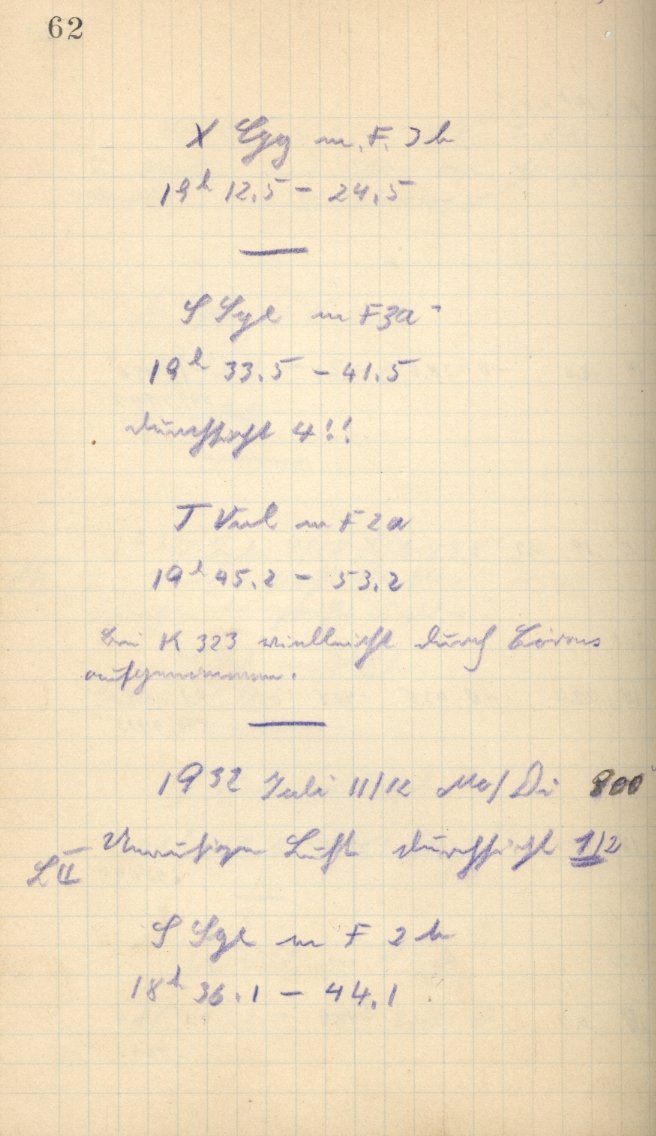 62
X Cyg m. F. 3b
19h 12.5 – 24.5
S Sge m F3a
19h 33.5 – 41.5
Durchsicht 4!!
T Vul m F 2a
19h 45.2 – 53.2
Bei K 323 vielleicht durch
aufgenommen.
1932 Juli 11/12 Mo/Di 800
Unruhige Luft Durchsicht 1/2
L II
S Sge m F 2b
18h 36.1 – 44.1